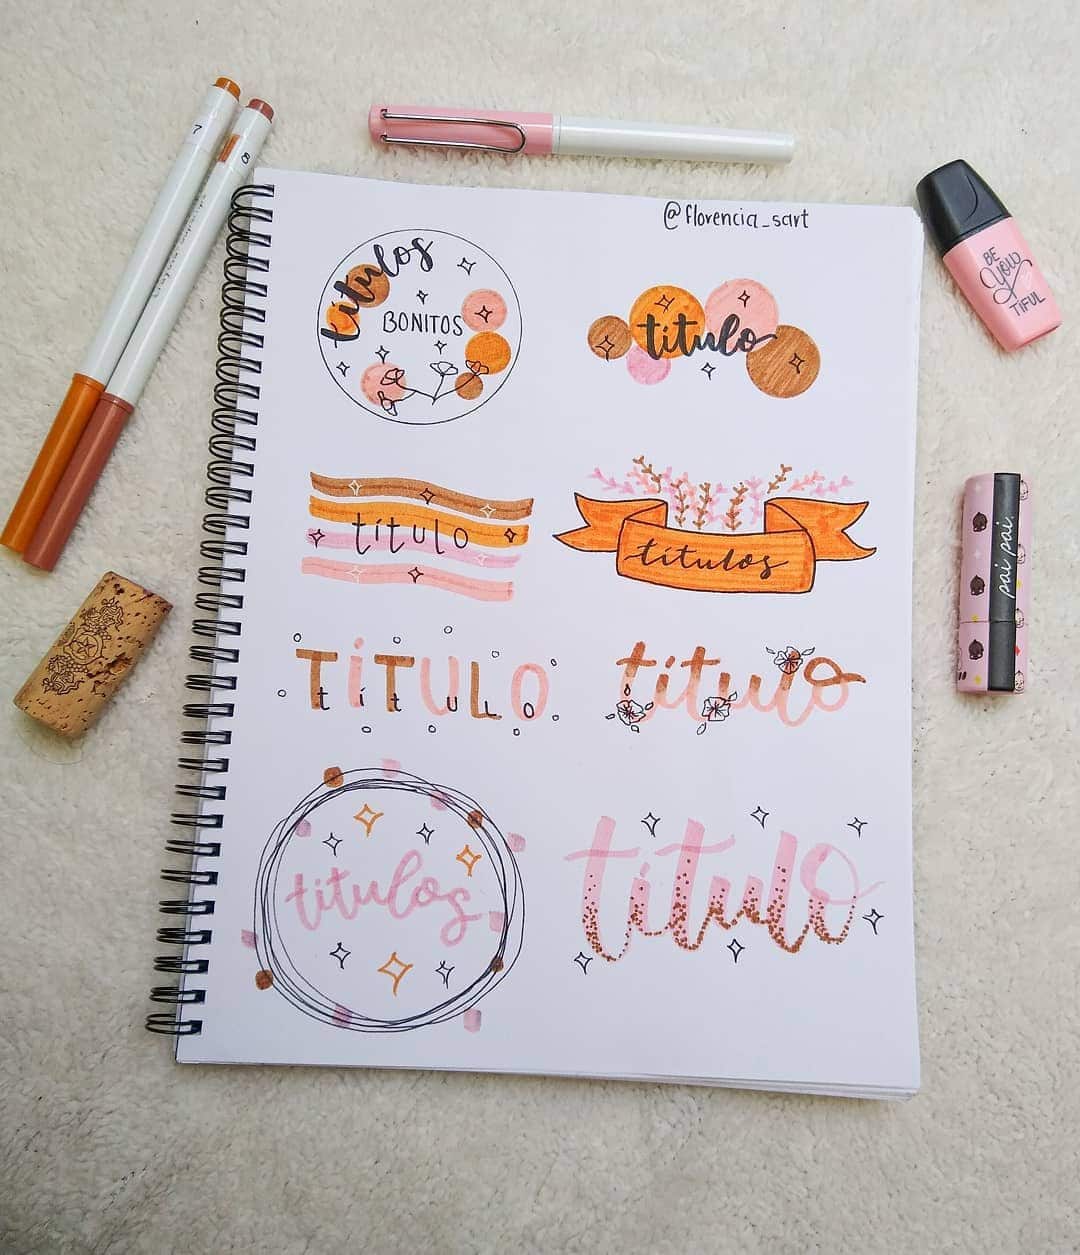 7
8
@florencia_sart
títulos
BONITOS
título
BE
YOU
TIFUL
título
títulos
pai pai
TÍTULO
título
título
títulos
título